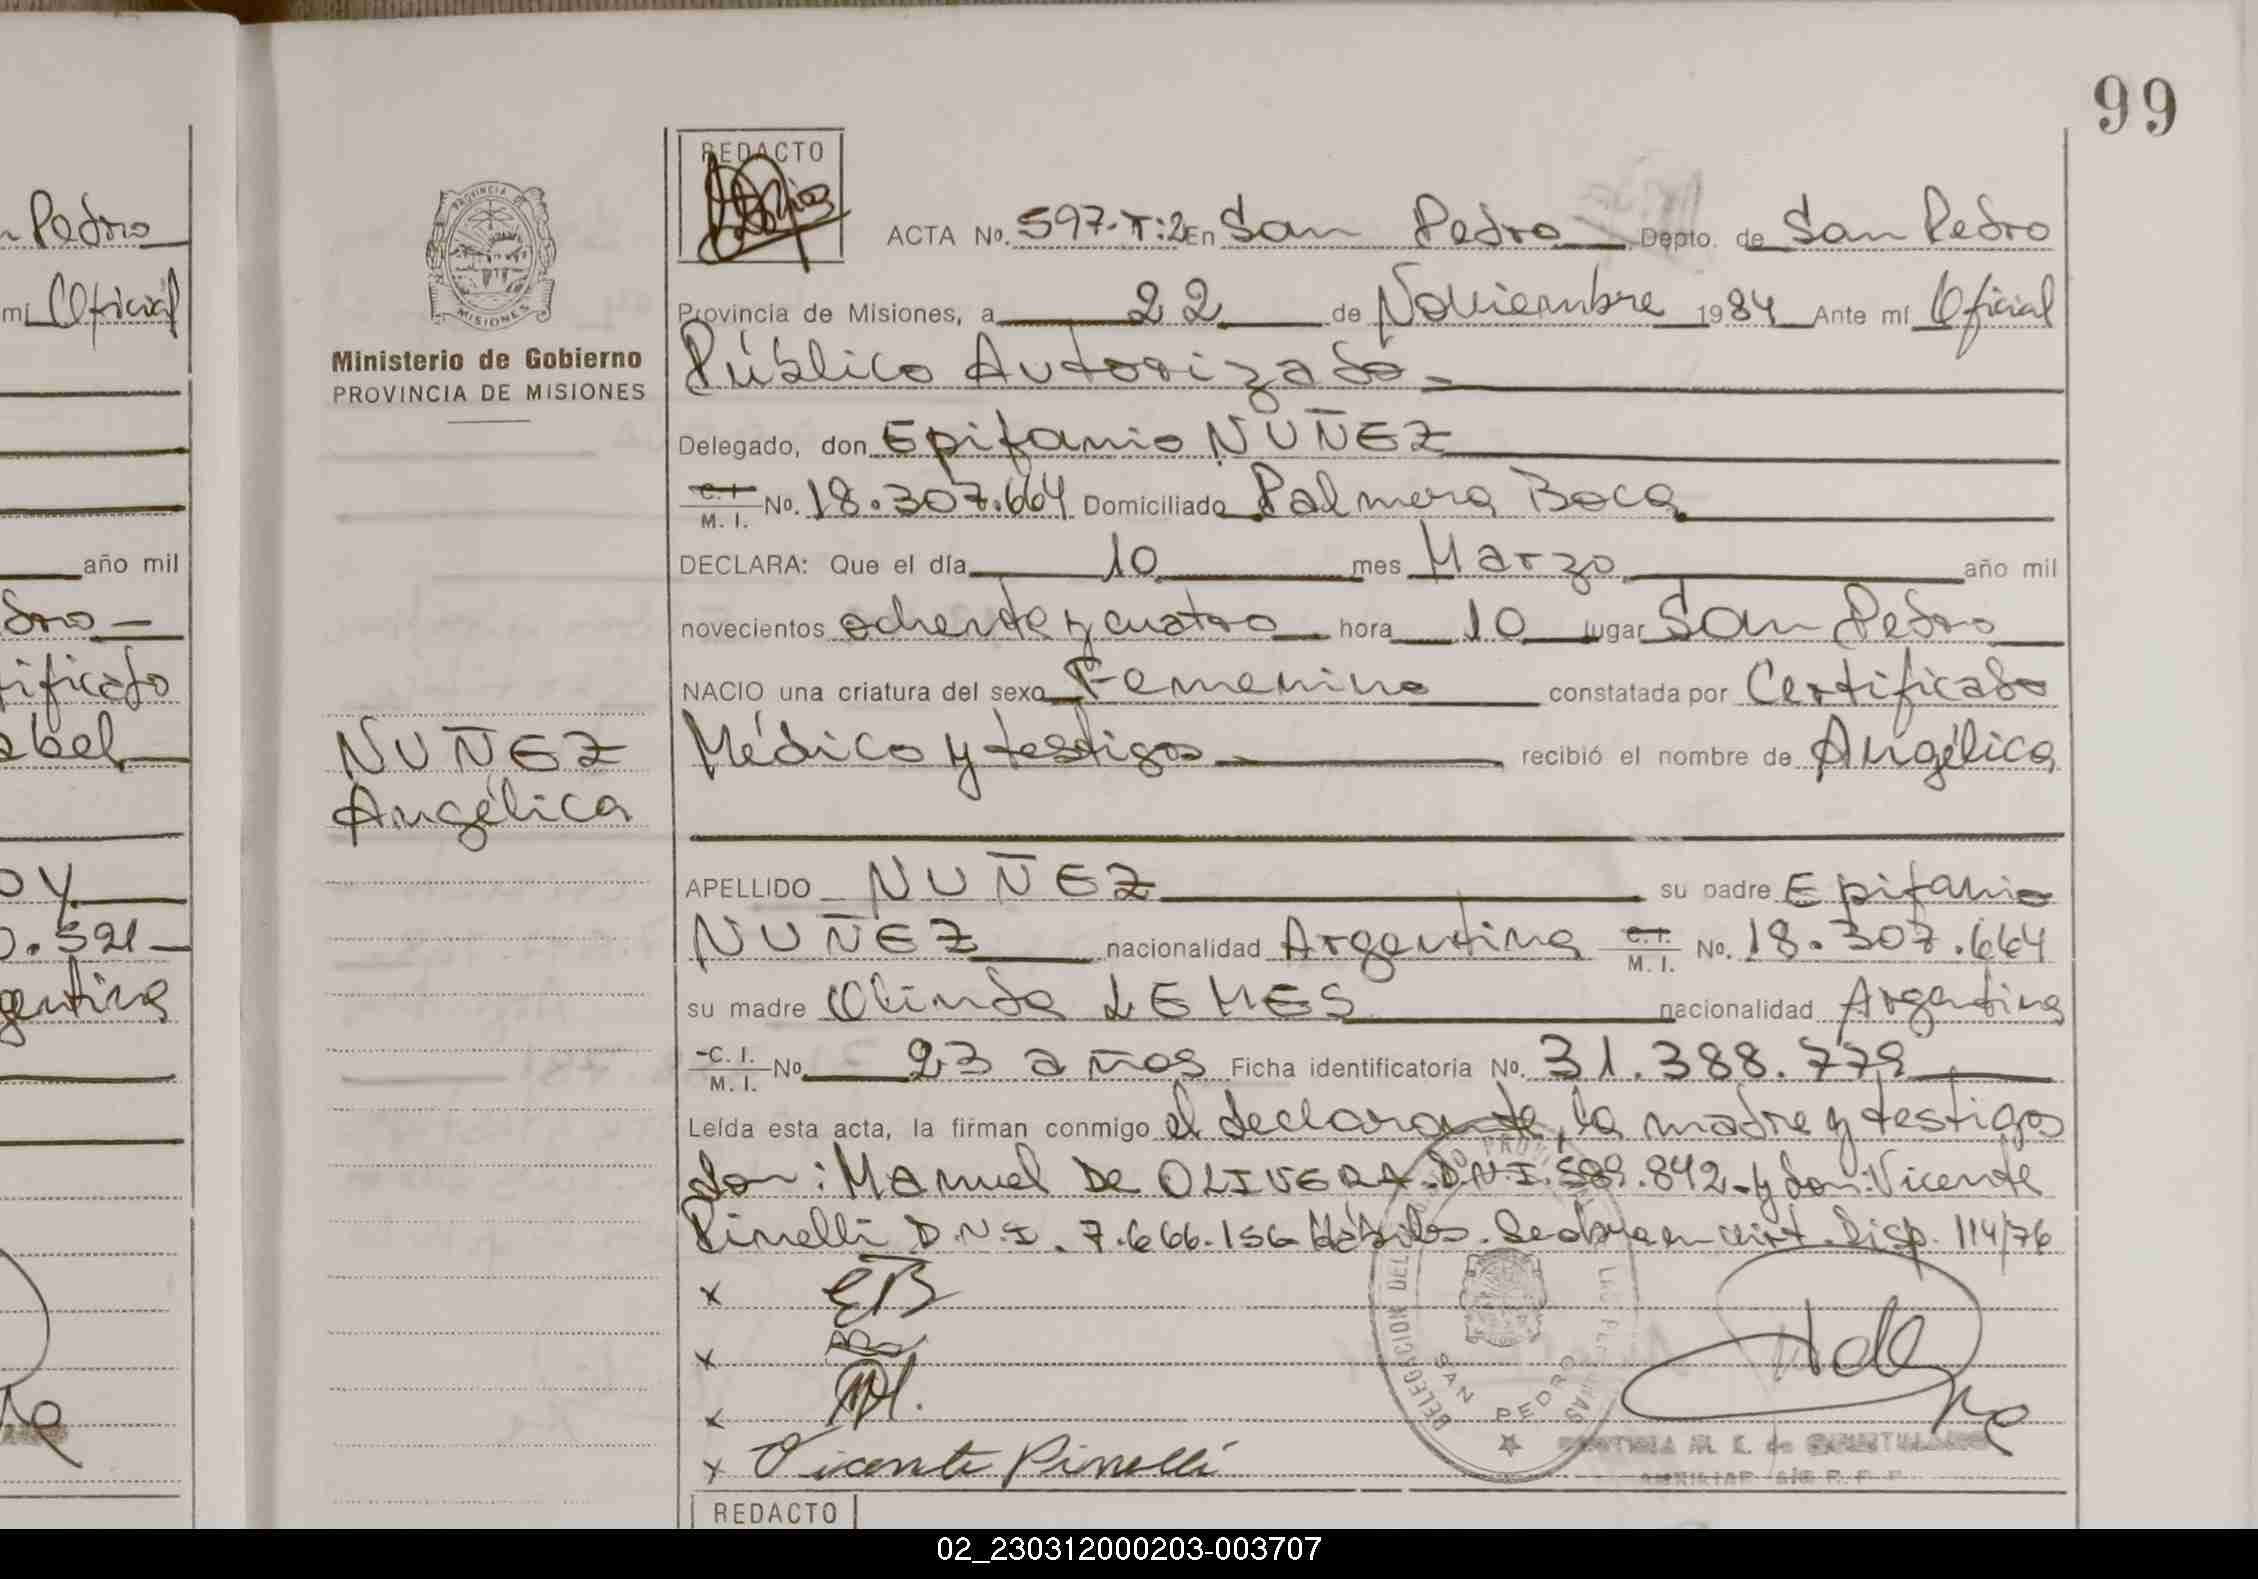 99
n Pedro
mí Oficial
año mil
dro
tificado
abel
oy
0.521
gentina
PROVINCIA DE
MISIONES
Ministerio de Gobierno
PROVINCIA DE MISIONES
NUÑEZ
Angélica
REDACTO
ACTA No. 597.T:2 En San Pedro Depto. de San Pedro
Provincia de Misiones, a 22 de Noviembre 1984 Ante mí Oficial
Público Autorizado
Delegado, don Epifanio NUÑEZ
C. I. M. I. No. 18.307.664 Domiciliado Palmera Boca
DECLARA: Que el día 10 mes Marzo año mil
novecientos ochenta y cuatro hora 10 lugar San Pedro
NACIO una criatura del sexo Femenino constatada por Certificado
Médico y testigos recibió el nombre de Angélica
APELLIDO NUÑEZ su padre Epifanio
NUÑEZ nacionalidad Argentina C. I. M. I. No. 18.307.664
su madre Olinda LEMES nacionalidad Argentina
C. I. M. I. No 23 años Ficha identificatoria No. 31.388.779
Leída esta acta, la firman conmigo el declarante, la madre y testigos
don: Manuel De OLIVERA D.N.I. 589.842 y don: Vicente
Pinelli D.N.I. 7.666.156 Hábiles. Se labra en virt. Disp. 114/76
x
x
x
x Vicente Pinelli
DELEGACION DEL
SAN PEDRO
REDACTO
02_230312000203-003707